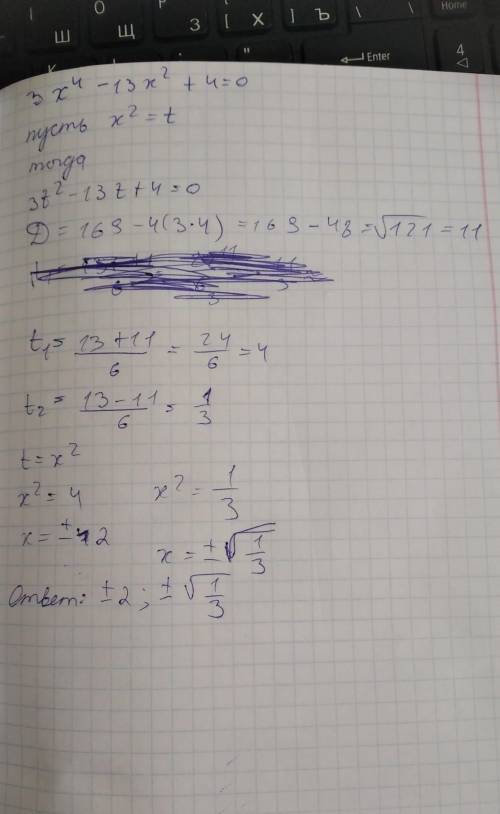 Ш Щ З [ Х ] Ъ \ \ Home
" Enter 4
3x⁴ - 13x² + 4 = 0
пусть x² = t
тогда
3t² - 13t + 4 = 0
D = 169 - 4(3·4) = 169 - 48 = √121 = 11
t₁ = (13 + 11)/6 = 24/6 = 4
t₂ = (13 - 11)/6 = 1/3
t = x²
x² = 4 x² = 1/3
x = ± 2 x = ± √(1/3)
Ответ: ± 2 ; ± √(1/3)